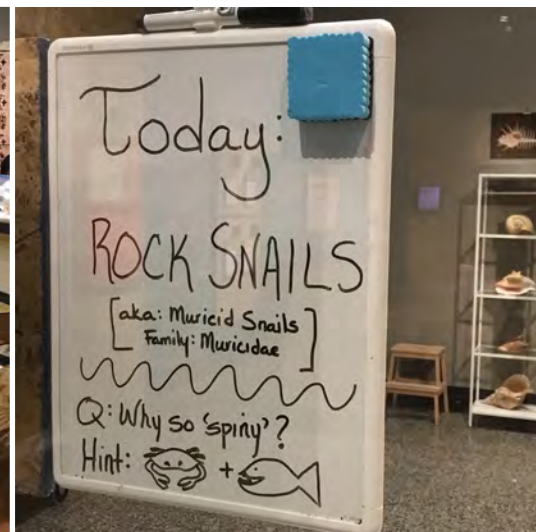 Today:
ROCK SNAILS
[aka: Muricid Snails
Family: Muricidae]
Q: Why so 'spiny'?
Hint: +